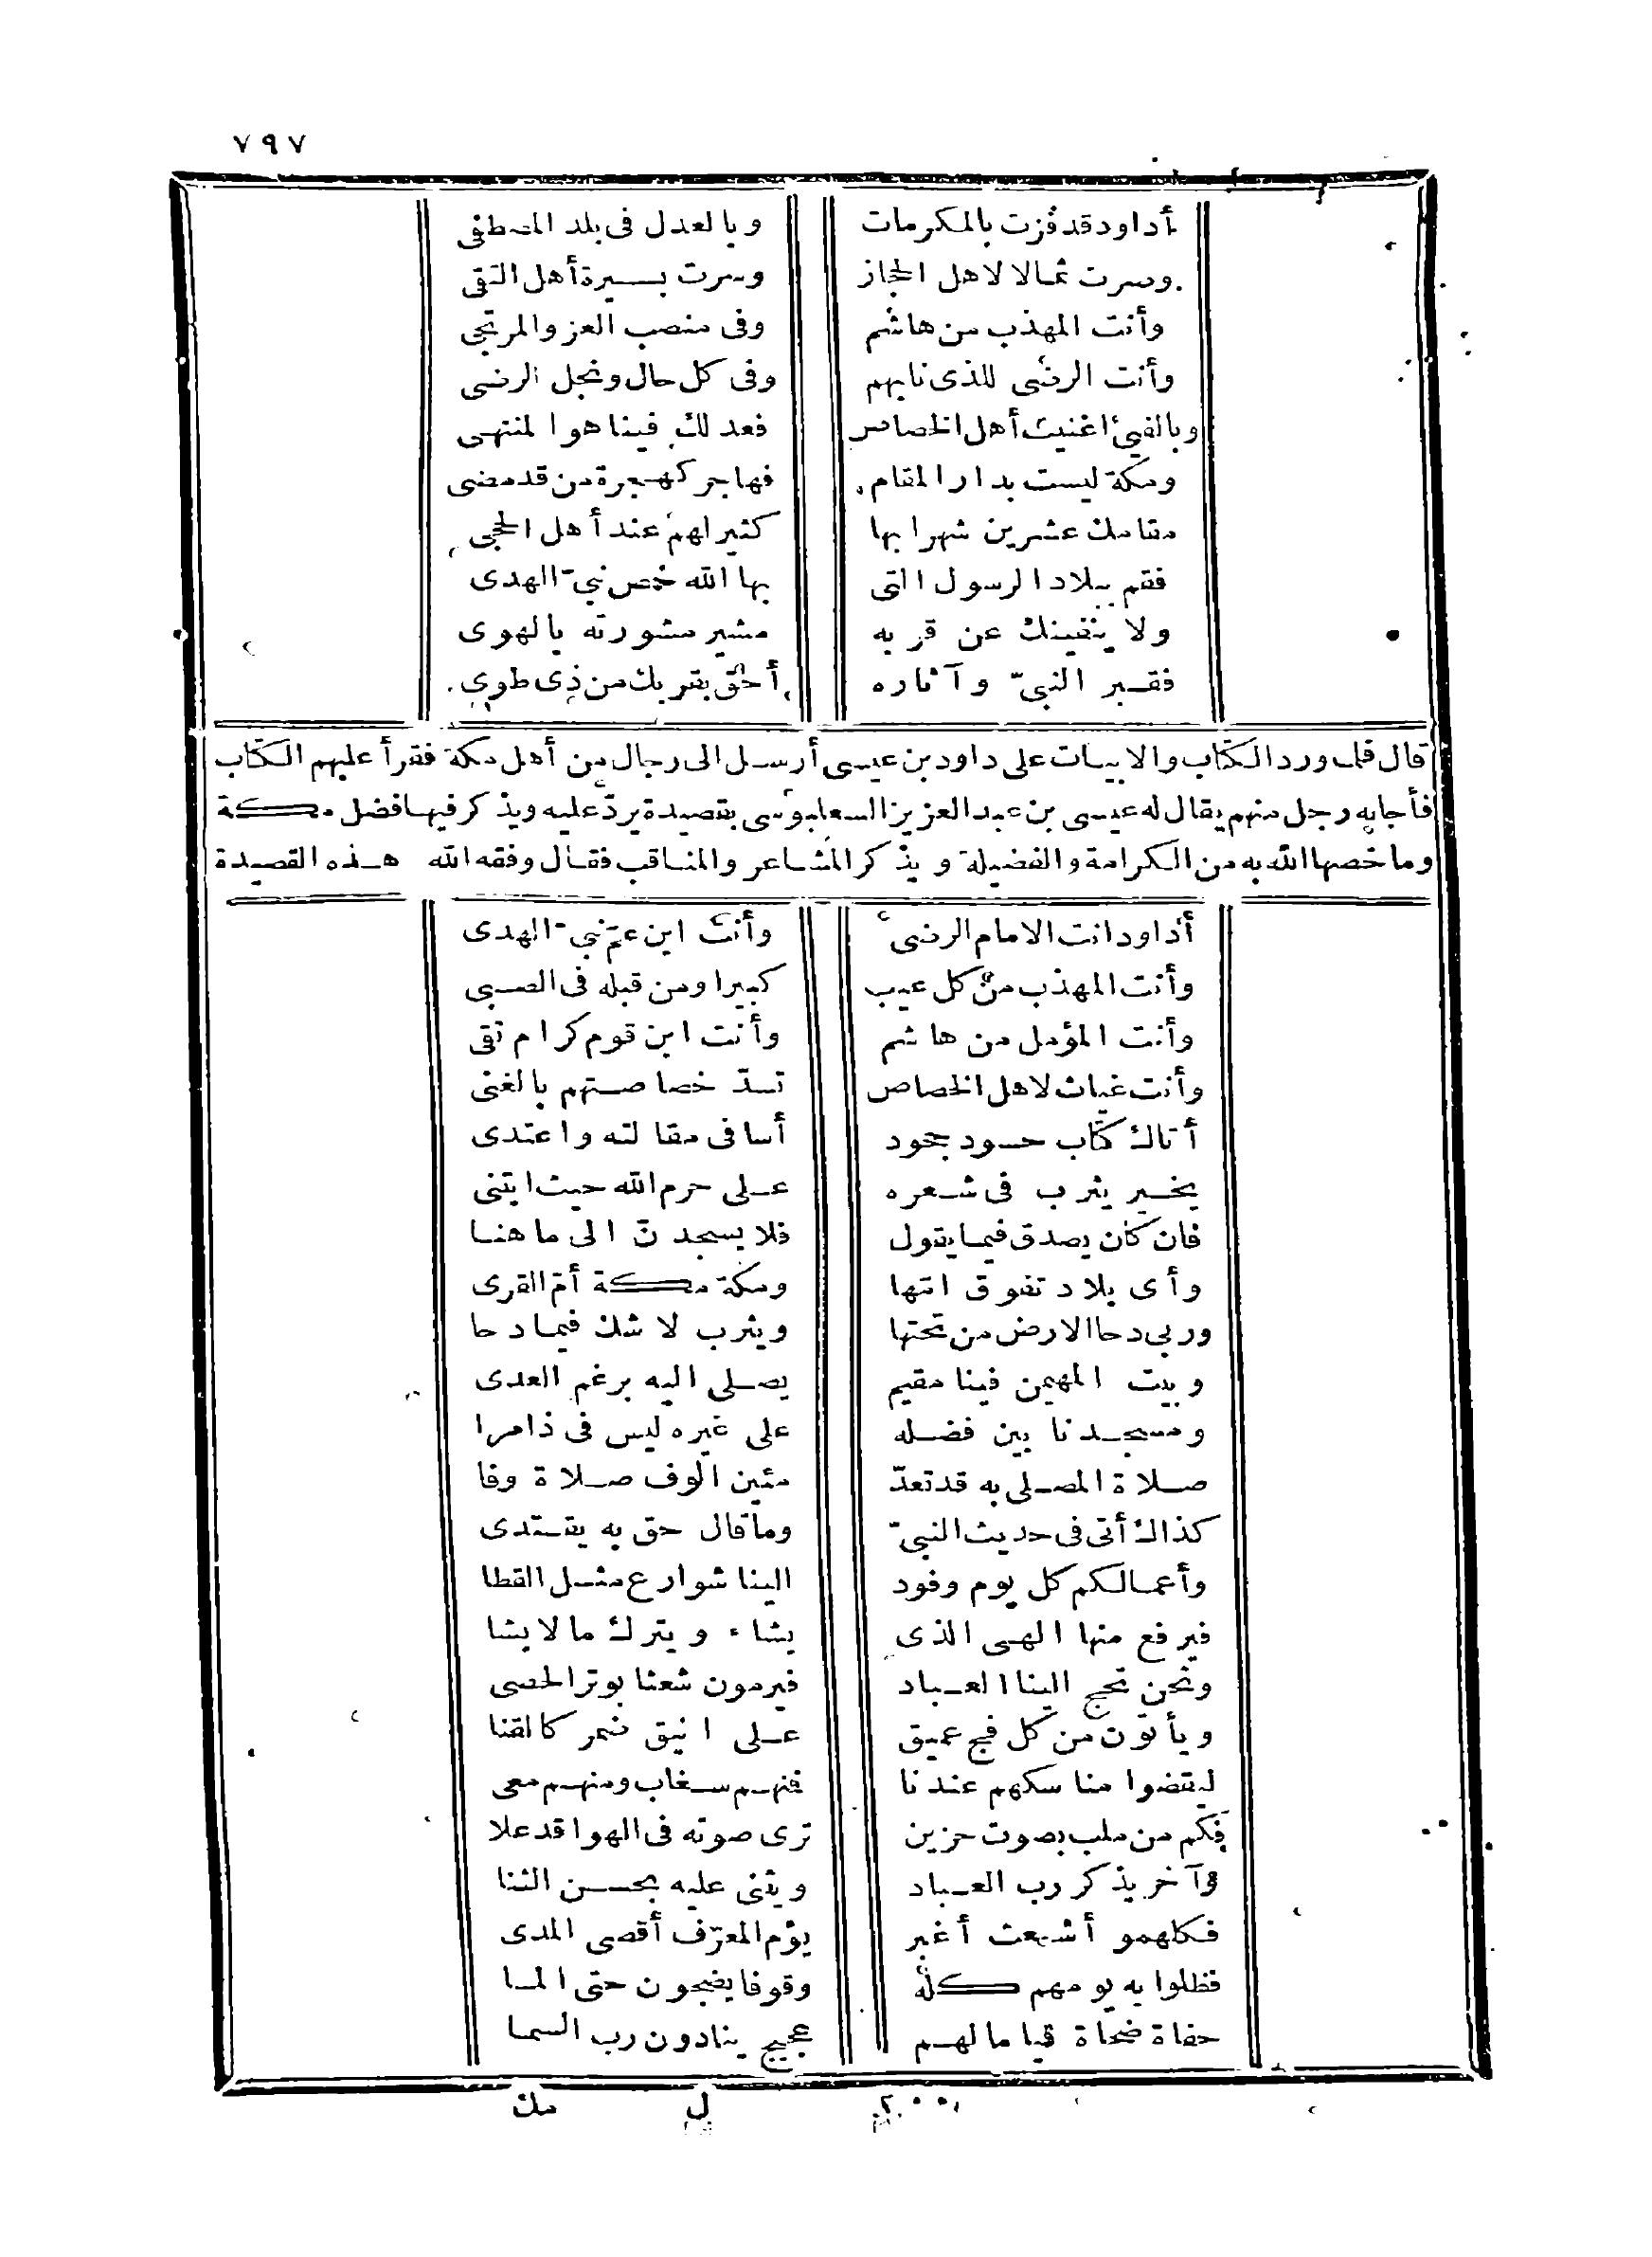 ٧٩٧
أداود قد فزت بالمكرمات وبالعدل فى بلد المصطفى
وصرت ثمالا لاهل الحجاز وسرت بسيرة أهل التقى
وأنت المهذب من هاشم وفى منصب العز والمرتجى
وأنت الرضى للذى نابهم وفى كل حال ونجل الرضى
وبالفىء اغنيت أهل الخصاص فعدلك فينا هو المنتهى
ومكة ليست بدار المقام فهاجر كهجرة من قد مضى
مقامك عشرين شهرا بها كثير لهم عند أهل الحجى
فقم ببلاد الرسول التى بها الله خص نبىّ الهدى
ولا ينفينك عن قربه مشير مشورته بالهوى
فقبر النبىّ وآثاره أحق بقربك من ذى طوى
قال فلما ورد الكتاب والابيات على داود بن عيسى أرسل الى رجال من أهل مكة فقرأ عليهم الكتاب
فأجابه رجل منهم يقال له عيسى بن عبد العزيز السعلبوسى بقصيدة يردّ عليه ويذكر فيها فضل مكة
وما خصها الله به من الكرامة والفضيلة ويذكر المشاعر والمناقب فقال وفقه الله هذه القصيدة
أداود انت الامام الرضى وأنت ابن عمّ نبىّ الهدى
وأنت المهذب من كل عيب كبيرا ومن قبله فى الصبى
وأنت المؤمل من هاشم وأنت ابن قوم كرام تقى
وأنت غياث لاهل الخصاص تسدّ خصاصتهم بالغنى
أتاك كتاب حسود جحود أسا فى مقالته واعتدى
يخير يثرب فى شعره على حرم الله حيث ابتنى
فان كان يصدق فيما يقول فلا يسجدنّ الى ما هنا
وأى بلاد تفوق امّها ومكة مكة أمّ القرى
وربى دحا الارض من تحتها ويثرب لا شك فيما دحا
وبيت المهيمن فينا مقيم يصلى اليه برغم العدى
ومسجدنا بين فضله على غيره ليس فى ذا مرا
صلاة المصلى به قد تعدّ مئين ألوف صلاة وفا
كذاك أتى فى حديث النبىّ وما قال حق به يقتدى
وأعمالكم كل يوم وفود الينا شوارع مثل القطا
فيرفع منها الهى الذى يشاء ويترك ما لا يشا
ونحن تحج الينا العباد فيرمون شعثا بوتر الحصى
ويأتون من كل فج عميق على انيق ضمر كالقنا
ليقضوا مناسكهم عندنا فمنهم سغاب ومنهم معى
فكم من ملب بصوت حزين ترى صوته فى الهوا قد علا
وآخر يذكر رب العباد ويثنى عليه بحسن الثنا
فكلهمو أشعث أغبر يؤم المعرّف أقصى المدى
فظلوا به يومهم كله وقوفا يضجون حتى المسا
حفاة ضحاة قياما لهم عجيج ينادون رب السما
ل مك